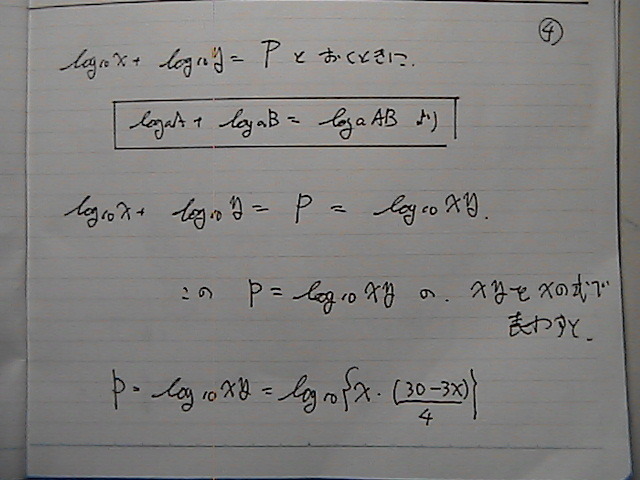 ④
log₁₀x + log₁₀y = P とおくときに.
logₐA + logₐB = logₐAB より
log₁₀x + log₁₀y = P = log₁₀xy.
この P = log₁₀xy の. xyをxの式で
表わすと.
P = log₁₀xy = log₁₀{x・(30-3x)/4}